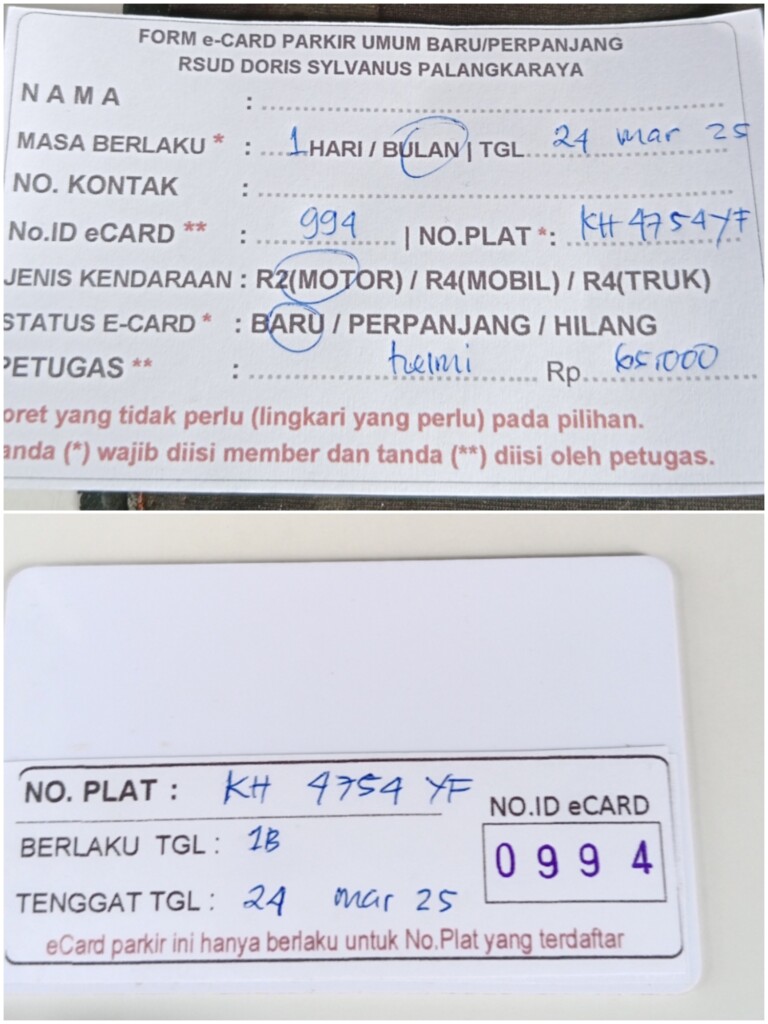 FORM e-CARD PARKIR UMUM BARU/PERPANJANG
RSUD DORIS SYLVANUS PALANGKARAYA
N A M A :
MASA BERLAKU * : 1 HARI / BULAN | TGL 24 mar 25
NO. KONTAK :
No.ID eCARD ** : 994 | NO.PLAT *: KH 4754 YF
JENIS KENDARAAN : R2(MOTOR) / R4(MOBIL) / R4(TRUK)
STATUS E-CARD * : BARU / PERPANJANG / HILANG
PETUGAS ** : helmi Rp. 65.000
oret yang tidak perlu (lingkari yang perlu) pada pilihan.
anda (*) wajib diisi member dan tanda (**) diisi oleh petugas.
NO. PLAT : KH 4754 YF
NO.ID eCARD
BERLAKU TGL : 1B
0 9 9 4
TENGGAT TGL : 24 mar 25
eCard parkir ini hanya berlaku untuk No.Plat yang terdaftar